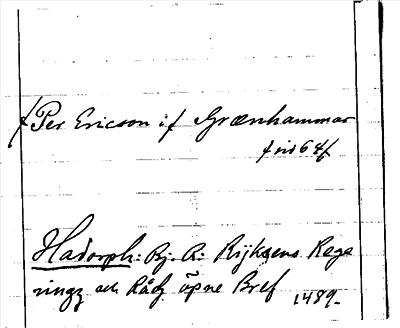 Per Ericson i Grænhammar
Hadorph: Bj. R: Rijksens Rege
ringz och Rådz öpne Bref 1489.